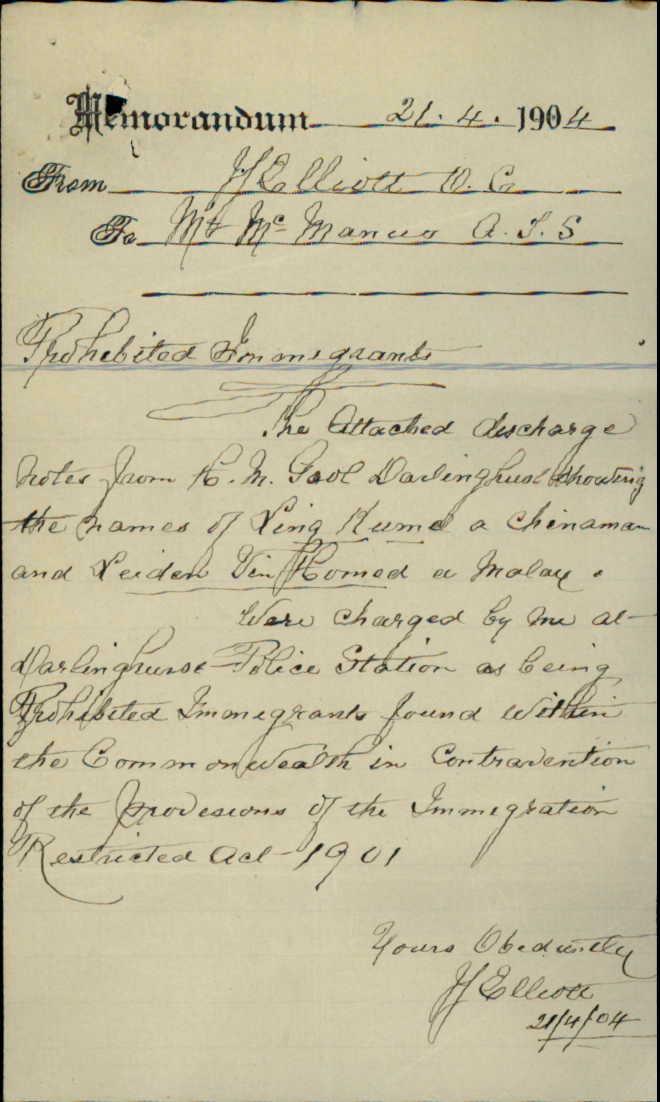 Memorandum 21. 4. 1904
From Elliott
To Mr McManus A. I. S
Prohibited Immigrants
The Attached discharge
notes from H. M. Gaol Darlinghurst showing
the names of Ling Kume a Chinaman
and Leiden Vin Homed a Malay.
Were charged by me at
Darlinghurst Police Station as being
Prohibited Immigrants found within
the Commonwealth in Contravention
of the provisions of the Immigration
Restricted Act 1901
Yours Obediently
Elliott
21/4/04